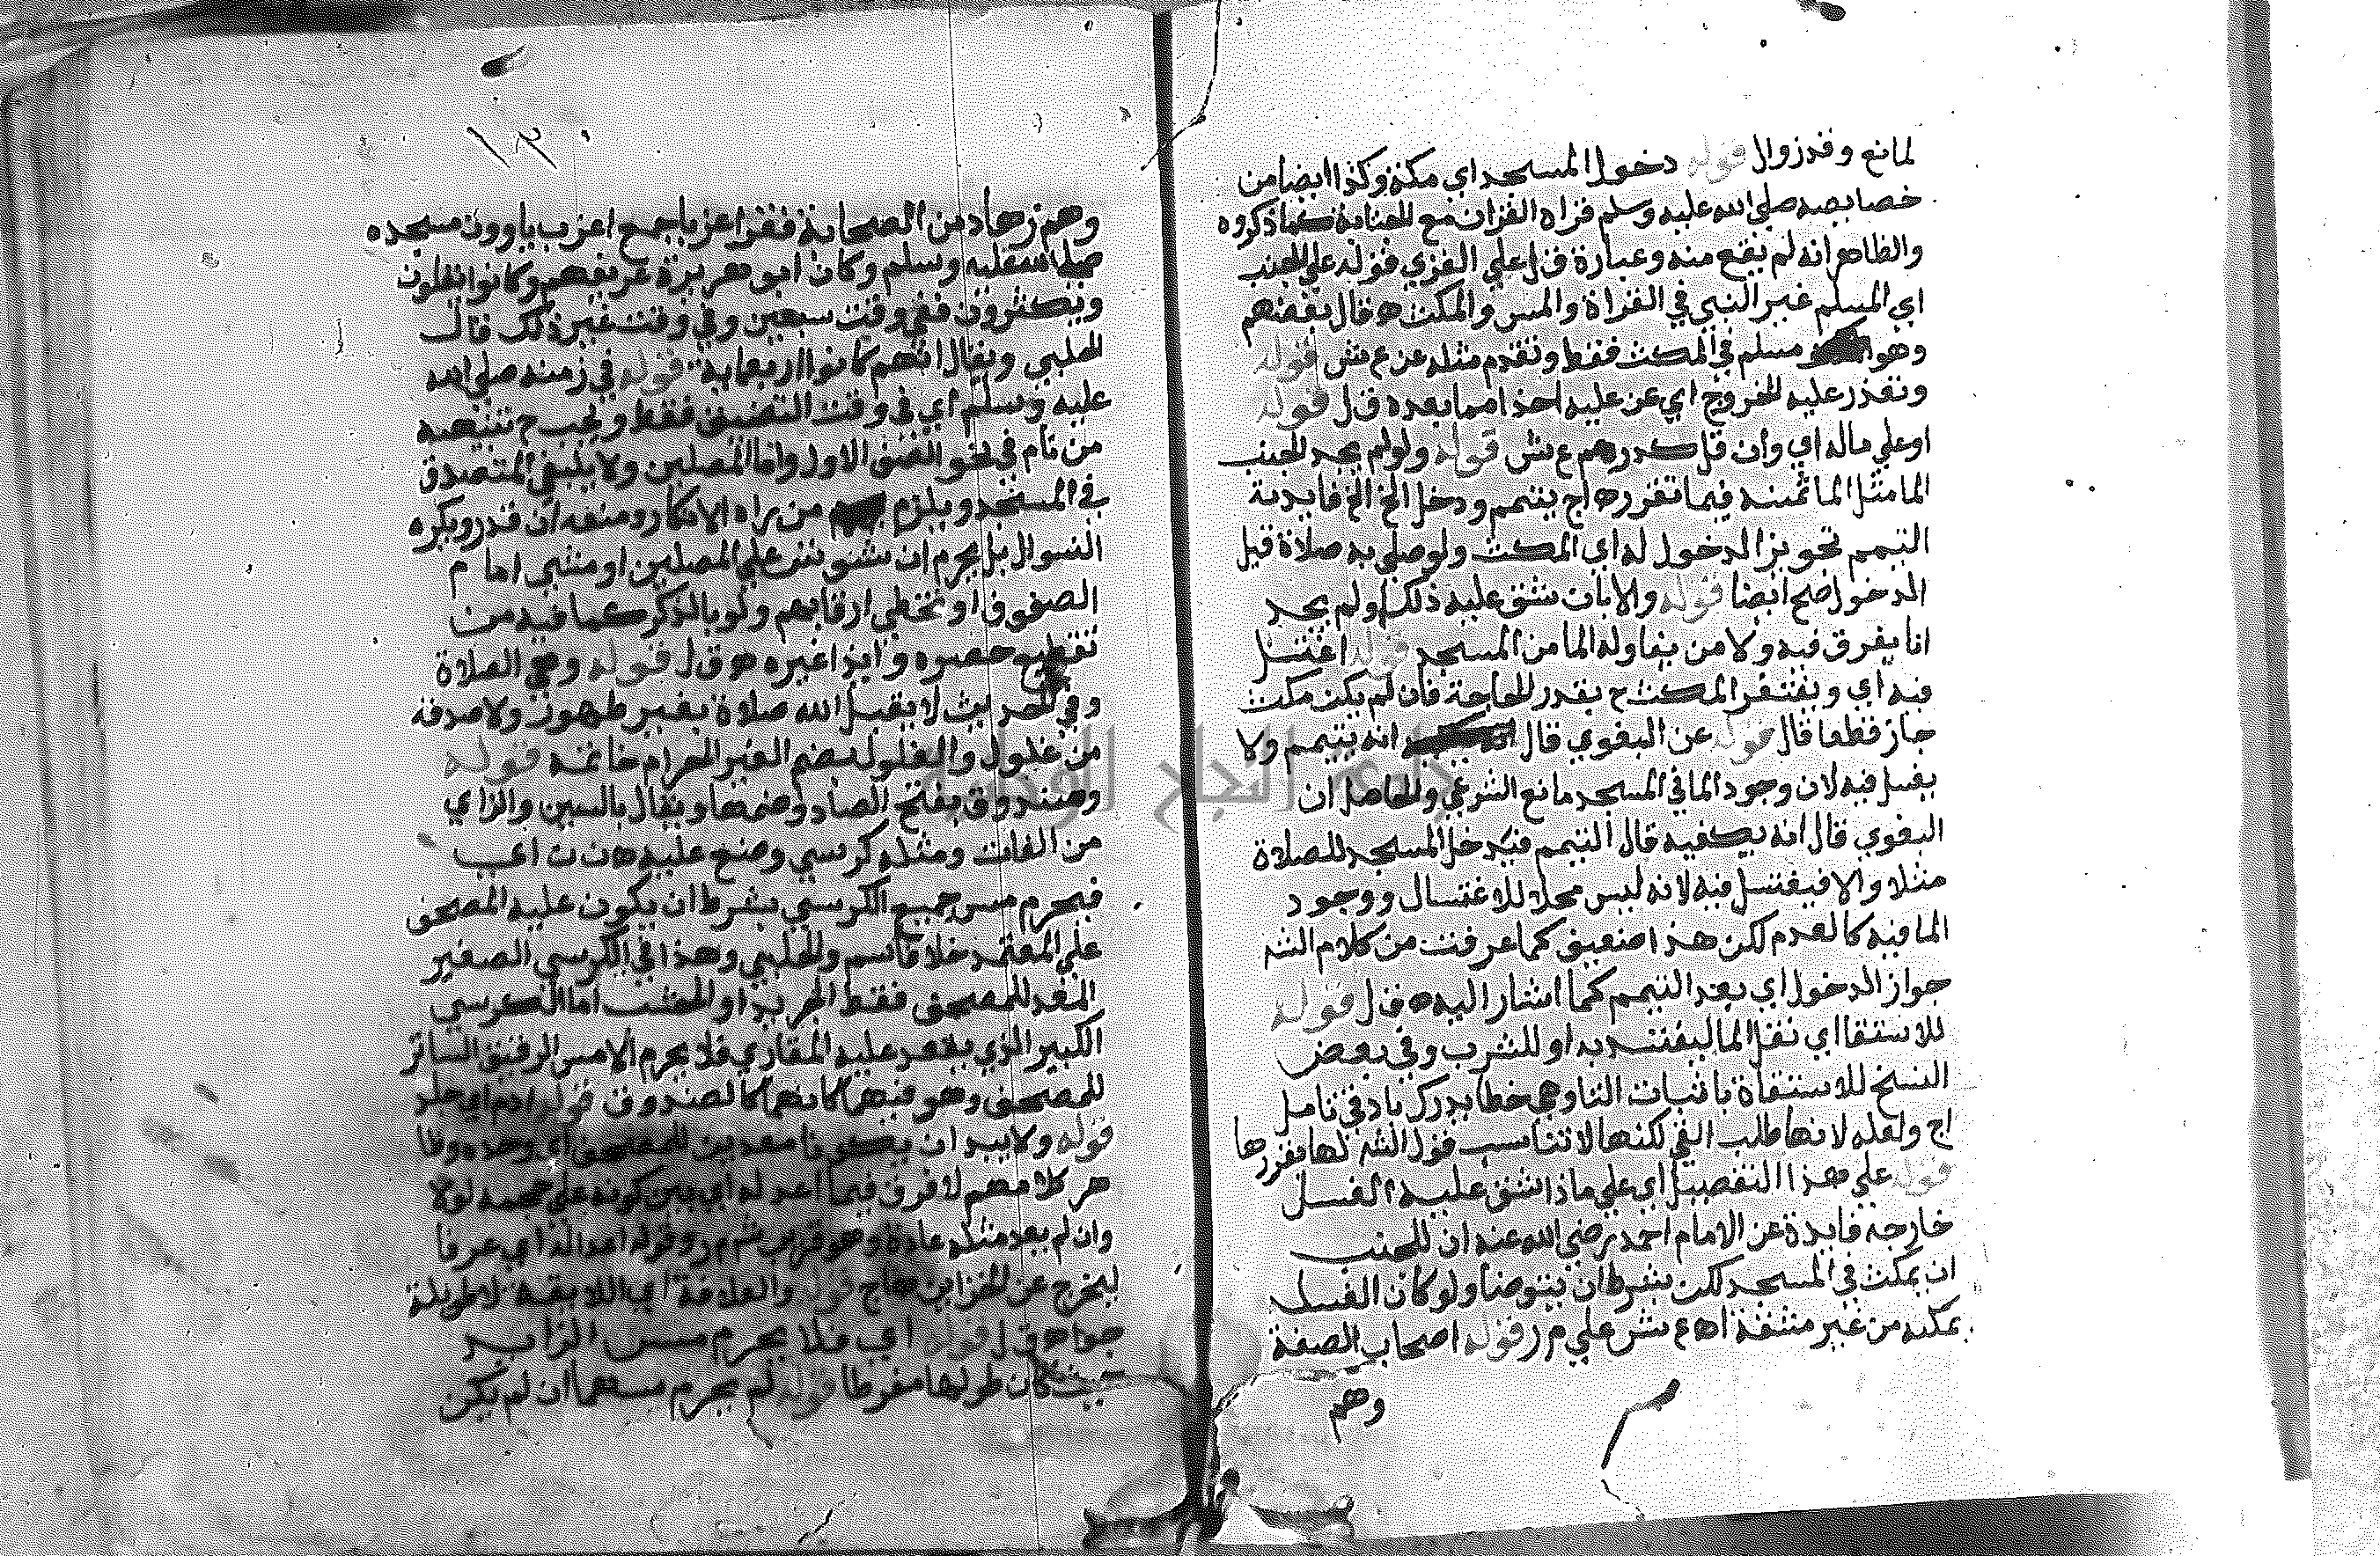 لمانع وقد زوال قوله دخول المسجد اي مكة وكذا ايضا من
خصايصه صلي الله عليه وسلم قراه القران مع الجنابة كما ذكروه
والظاهر انه لم يقع منه وعبارة ق ل علي الغزي قوله علي الجنب
اي المسلم غير النبي في القراة والمس والمكث ه قال بعضهم
وهو مسلم في المكث فقط وتقدم مثله عن ع ش قوله
وتعذر عليه الخروج اي عن عليه اخذا مما بعده ق ل قوله
او علي ماله اي وان قل كدرهم ع ش قوله ولو لم يجد الجنب
الما مثل الما ثمنه فيما تقرره اج يتيمم ودخل الخ الخ فايدية
التيمم تجويز الدخول له اي المكث ولو صلي به صلاة قبل
الدخول صح ايضا قوله والا بان شق عليه ذلك او لم يجد
انا يفرق فيه ولا من يناوله الما من المسجد قوله اغتسل
فيه اي ويغتفر المكث ح بقدر الحاجة فان لم يكن مكث
جاز قطعا قال قوله عن البغوي قال انه يتيمم ولا
يغسل فيه لان وجود الما في المسجد مانع الشرعي والحاصل ان
البغوي قال انه يكفيه قال التيمم فيدخل المسجد للصلاة
مثلا والا فيغتسل فيه لانه ليس محلا للاغتسال ووجود
الما فيه كالعدم لكن هذا ضعيف كما عرفت من كلام الشه
جواز الدخول اي بعد التيمم كما اشار اليه ه ق ل قوله
للاستقا اي نقل الما ليغتسل به او للشرب وفي بعض
النسخ للاستقاة باثبات التا وهي خطا يدرك بادني تامل
اج ولعله لانها طلب القي لكنها لا تناسب قول الشه لها مقررها
قوله علي هذا التفصيل اي علي ماذا شق عليه الغسل
خارجه فايدة عن الامام احمد رضي الله عنه ان للجنب
ان يمكث في المسجد لكن بشرط ان يتوضا ولو كان الغسل
يمكنه من غير مشقة اه ع ش علي م ر قوله اصحاب الصفة
وهم
١٢٠
وهم زهاد من الصحابة فقرا عزبا جمع اعزب ياوون مسجده
صلي الله عليه وسلم وكان ابو هريرة عريفهم وكانوا يقلون
ويكثرون ففي وقت سبعين وفي وقت غير ذلك قال
الحلبي ويقال انهم كانوا اربعماية قوله في زمنه صلي الله
عليه وسلم اي في وقت التضيق فقط ويجب ح تنبيهه
من نام في نحو الصف الاول واما المصلين ولا ينبغي المتصدق
في المسجد ويلزم من راه الانكار ومنعه ان قدر ويكره
السوال بل يحرم ان شوش علي المصلين او مشي امام
الصفوف او تخطي ارقابهم ولو بالذكر كما فيه من
تقطيع حصره وايذا غيره ه ق ل قوله وهي الصلاة
وفي الحديث لا يقبل الله صلاة بغير طهور ولا صدقة
من غلول والغلول بضم الغير الحرام خاتمة قوله
وصندوق بفتح الصاد وضمها ويقال بالسين والزاي
من الفات ومثله كرسي وضع عليه ه ن ت اعي
فيحرم مس جميع الكرسي بشرط ان يكون عليه المصحف
علي المعتمد خلافا قاسم والحلبي وهذا في الكرسي الصغير
المعد للمصحف فقط الجريد او الخشب اما الكرسي
الكبير الذي يقعد عليه المقاري فلا يحرم الا مس الرفيق الساتر
للمصحف وهو فيهما كانهما كالصندوق قوله ادم اي جلد
قوله ولا بد ان يكونا معدين للمصحف اي وحده وظا
هر كلامهم لا فرق فيما اعد له اي بين كونه علي حجمه او لا
وان لم يعد مثله عادة وهو قريب ش م ر وقوله اعد له اي عرفا
ليخرج عن الخزاين ه اج قوله والعلاقة اي اللايقة لا طويلة
جدا ه ق ل قوله اي فلا يحرم مس الزايد
حيث كان طولها مفرطا قوله لم يحرم مسهما ان لم يكن